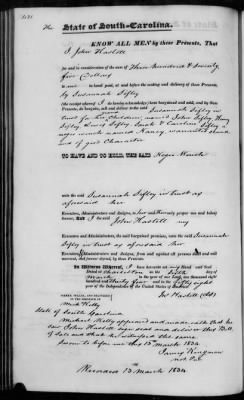 The State of South-Carolina.
KNOW ALL MEN by these Presents, That
I John Haslett
for and in consideration of the sum of Three hundred & Seventy
five Dollars
to me in hand paid, at and before the sealing and delivery of these Presents,
by Susannah Sifley
(the receipt whereof I do hereby acknowledge) have bargained and sold, and by these
Presents, do bargain, sell and deliver to the said Susannah Sifley in
trust for her Children, named John Sifley, Henry
Sifley,
negro wench named Nancy, warranted sound
and of good Character
TO HAVE AND TO HOLD, THE SAID Negro Wench
unto the said Susannah Sifley in trust as
aforesaid her
Executors, Administrators and Assigns, to
John Haslett my
Executors and Administrators, the said bargained premises, unto the said Susannah
Sifley in trust as aforesaid her
Executors, Administrators and Assigns, from and against all persons
shall warrant, and forever defend, by these Presents.
In Witness Whereof, I have hereunto set my Hand and Seal
Dated at Charleston on the day of
March in the year of our Lord, one thousand eight
hundred and thirty four and in the fifty eight
year of the Independence of the United States of America
Jno Haslett (LS)
SIGNED, SEALED, AND DELIVERED
IN THE PRESENCE OF
Mich Kelly
State of South Carolina
Michael Kelly appeared and made oath that he
saw John Haslett sign seal and deliver this Bill
of Sale and that he witnessed the same
Sworn to before me this 13 March 1834
James Kingman
Not. Pub.
Recorded 13 March 1834